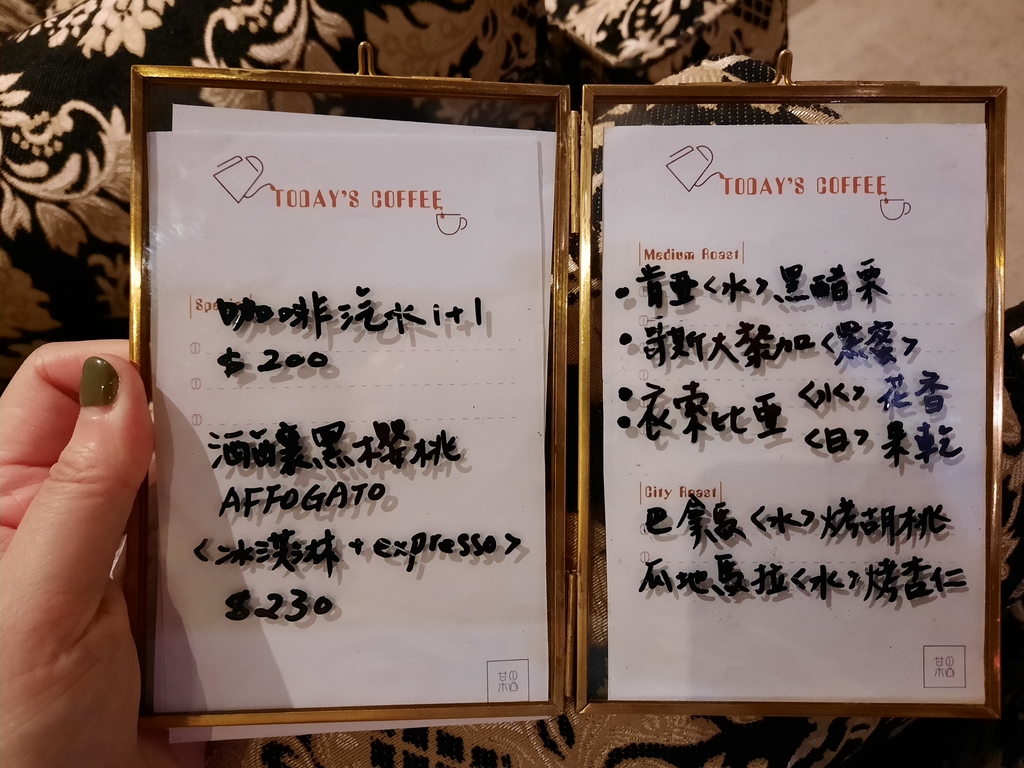 TODAY'S COFFEE
咖啡汽水 i+1
$200
酒釀黑櫻桃
AFFOGATO
<冰淇淋 + expresso>
$230
TODAY'S COFFEE
Medium Roast
• 肯亞<水>黑醋栗
• 哥斯大黎加<黑蜜>
• 衣索比亞 <水> 花香
<日> 果乾
City Roast
巴拿馬<水>烤胡桃
瓜地馬拉<水>烤杏仁